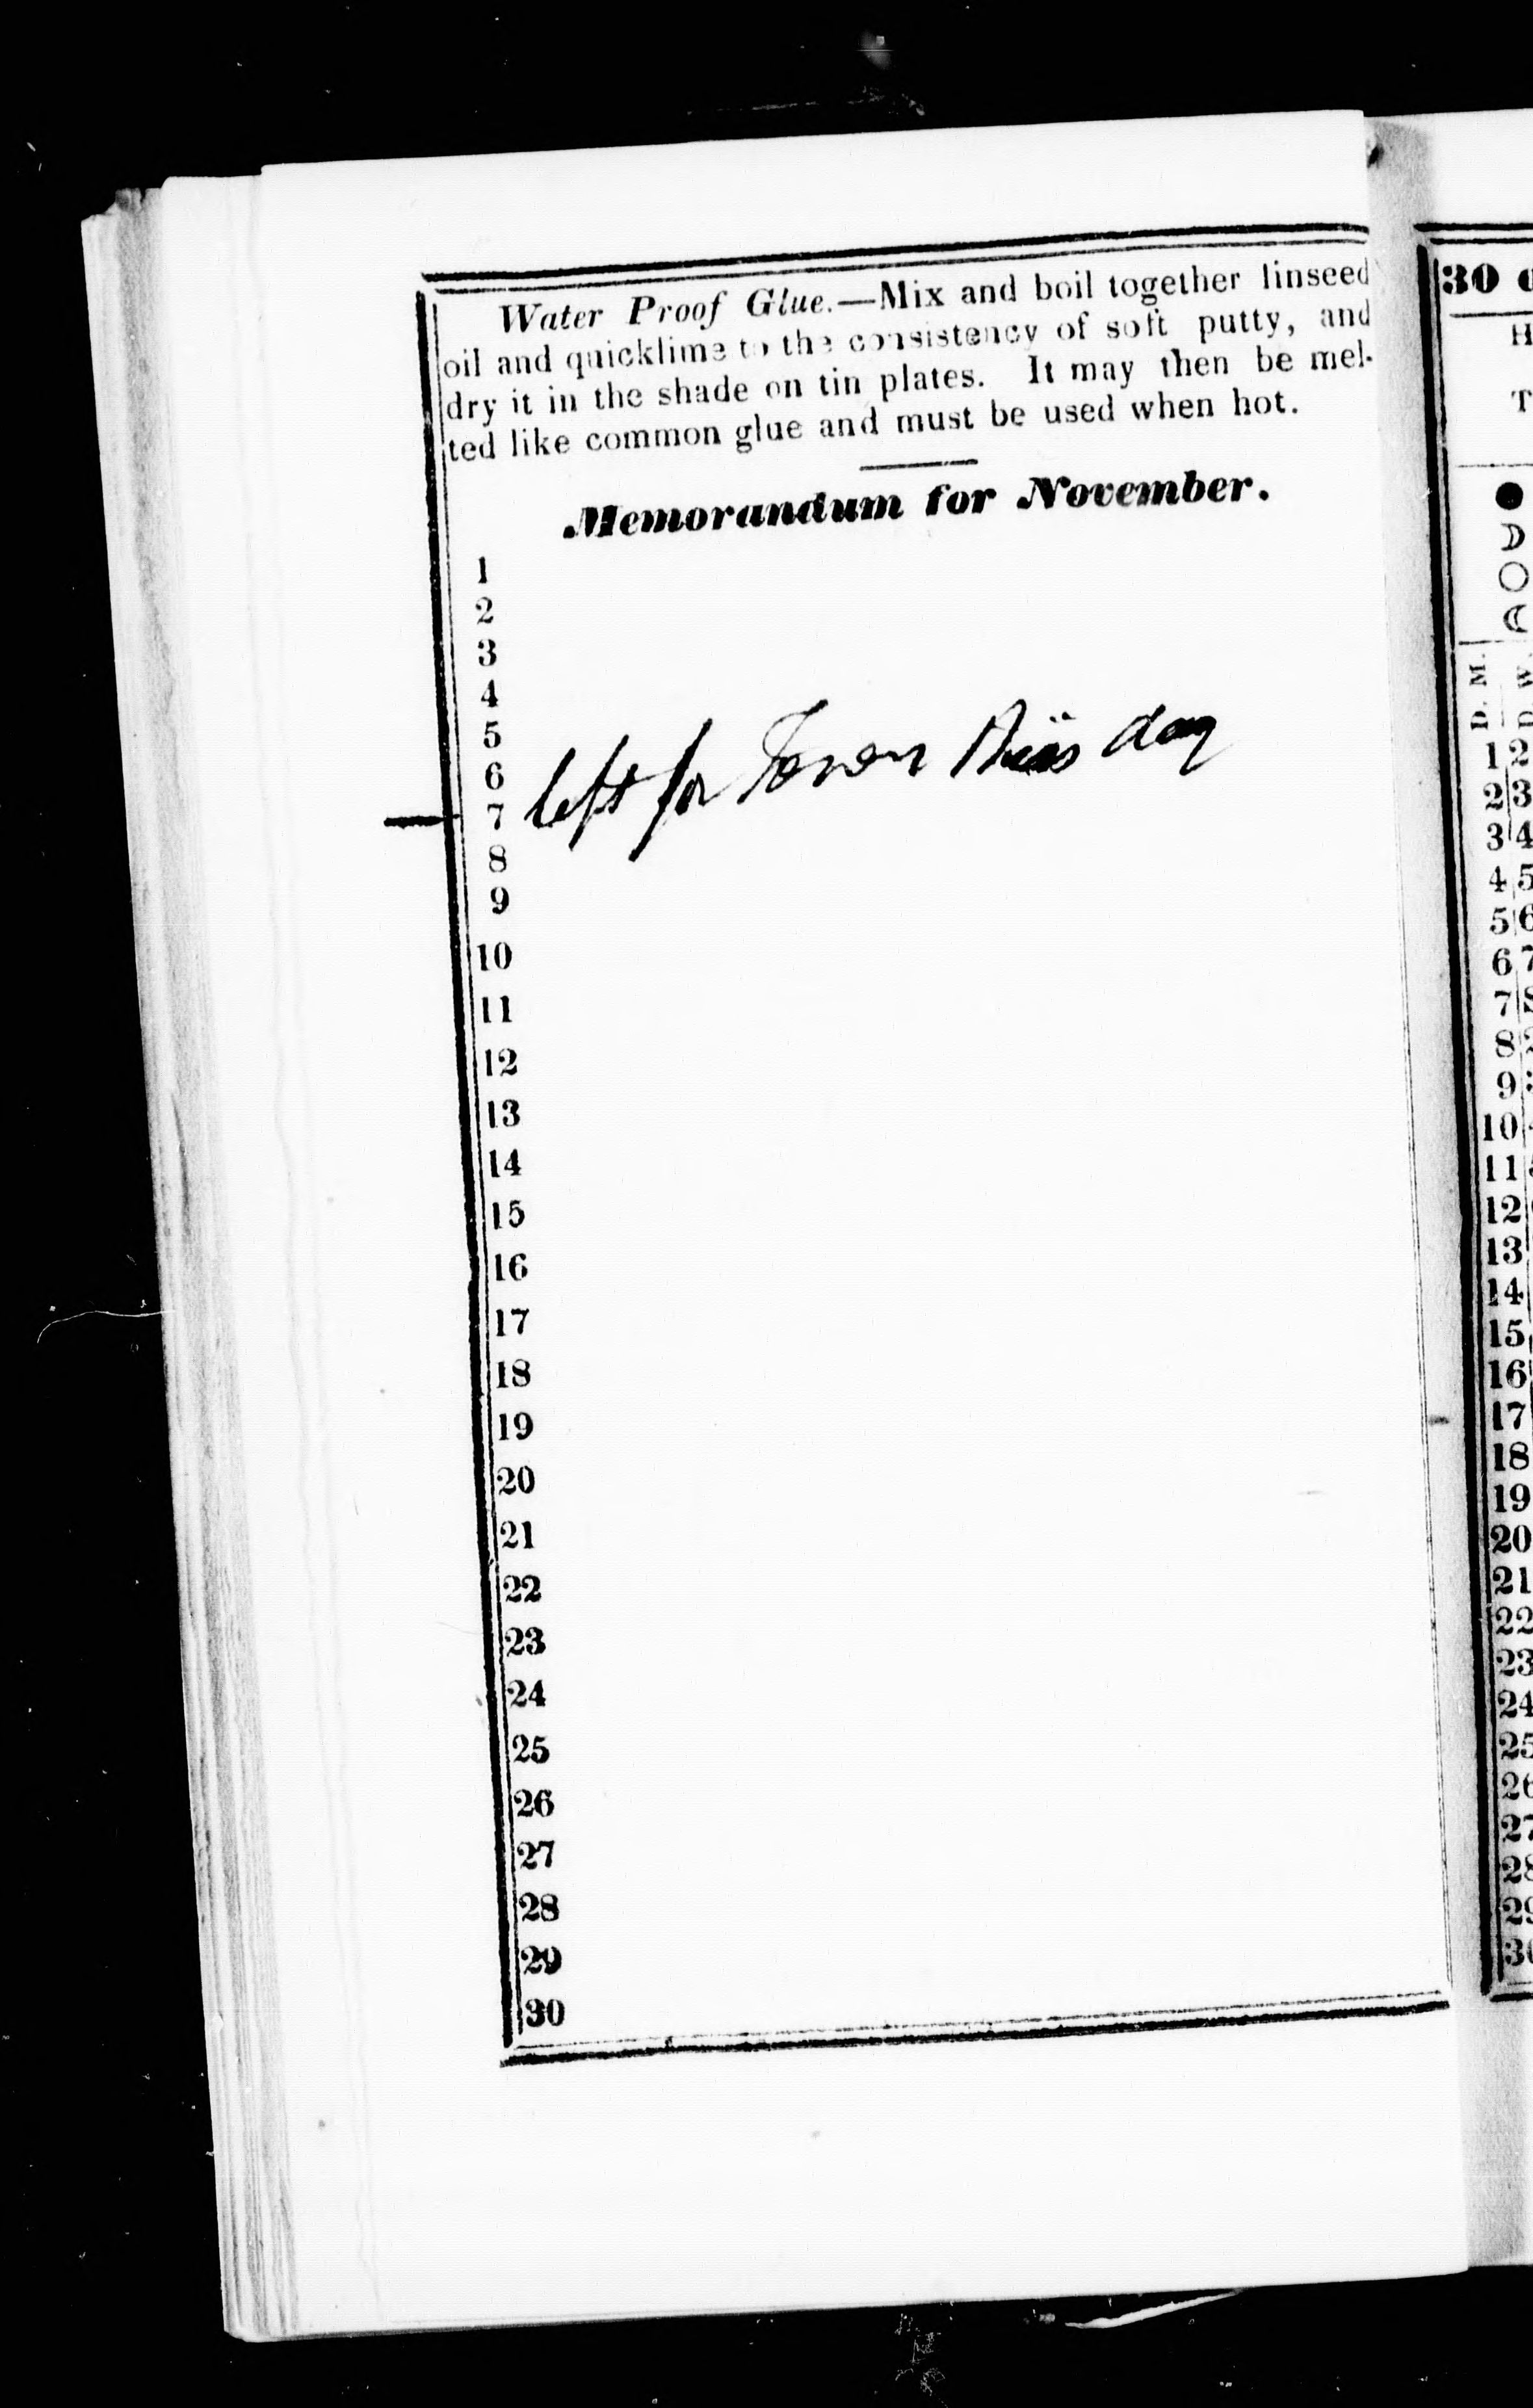 Water Proof Glue.—Mix and boil together linseed
oil and quicklime to the consistency of soft putty, and
dry it in the shade on tin plates. It may then be mel-
ted like common glue and must be used when hot.
Memorandum for November.
1
2
3
4
5
6
7 left for this day
8
9
10
11
12
13
14
15
16
17
18
19
20
21
22
23
24
25
26
27
28
29
30
30
H
T
D. M.
D. W.
1 2
2 3
3 4
4 5
5 6
6 7
7
8
9
10
11
12
13
14
15
16
17
18
19
20
21
22
23
24
25